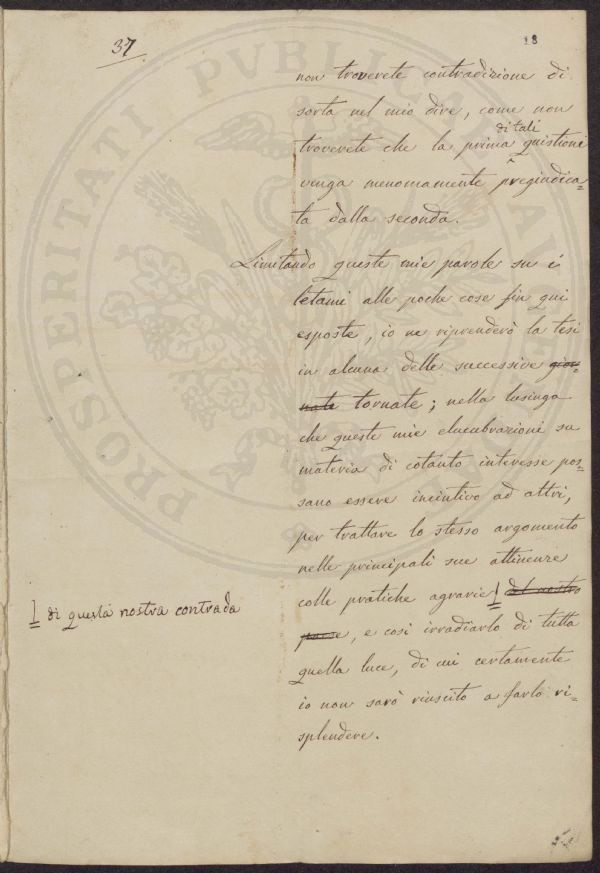 37
18
non troverete contradizione di
sorta nel mio dire, come non
di tali
troverete che la prima ^ quistioni
venga menomamente pregiudica=
ta dalla seconda.
Limitando queste mie parole su i
letami alle poche cose fin qui
esposte, io ne riprenderò la tesi
in alcuna delle successive gior=
nate tornate; nella lusinga
che queste mie elucubrazioni su
materia di cotanto interesse pos=
sano essere incentivo ad altri,
per trattare lo stesso argomento
nelle principali sue attinenze
colle pratiche agrarie del nostro
di questa nostra contrada
paese, e così irradiarlo di tutta
quella luce, di cui certamente
io non sarò riuscito a farlo ri=
splendere.
PROSPERITATI PVBLICAE AVG